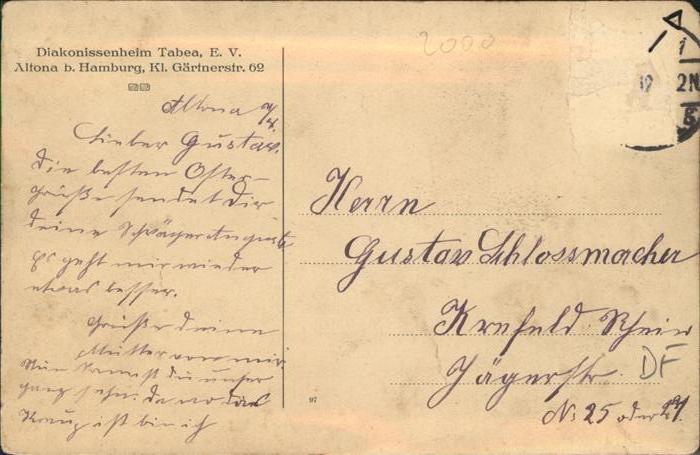 Diakonissenheim Tabea, E. V.
Altona b. Hamburg, Kl. Gärtnerstr. 62
2000
Altona
Lieber Gustav.
die besten Oster-
grüße sendet Dir
deine Schwägerin
Es geht mir wieder
etwas besser.
Grüße deine
Mutter von mir.
Nun kannst du unser
ganz sehn. da wo das
Kreuz ist bin ich
Herrn
Gustav Schlossmacher
Krefeld Rhein
Jägerstr.
No 25 oder 27.
DF
97
2N